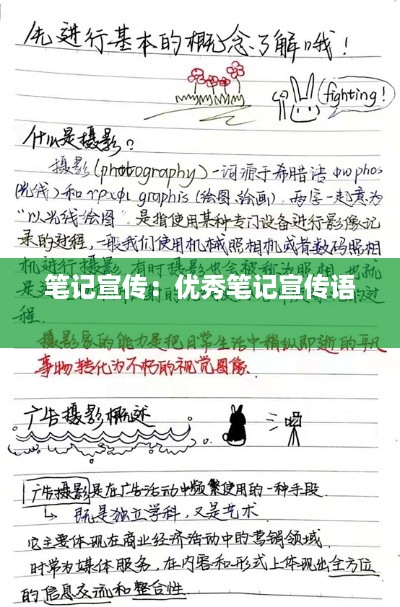 先进行基本的概念了解哦！
fighting!
什么是摄影？
摄影(photography)一词源于希腊语 φω phos
(光线)和 graphis (绘图、绘画)，两字一起意为
“以光线绘图”。是指使用某种专门设备进行影像记
录的过程，一般我们使用机械照相机或者数码照相
机进行摄影。有时摄影也会被称为照相，也就
笔记宣传：优秀笔记宣传语
过程
摄影家的能力是把日常生活中稍纵即逝的平凡
事物转化为不朽的视觉图像。
广告摄影概述
广告摄影是在广告活动中频繁使用的一种手段
↳ 既是独立学科，又是艺术．
它主要体现在商业经济活动中的营销领域．
时常为媒体服务，在内容和形式上体现出全方位
的信息交流和整合性．